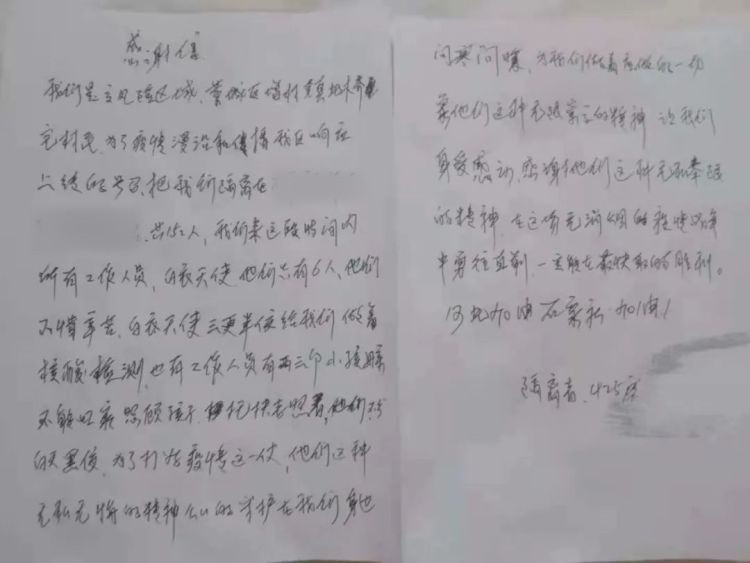 感谢信
我们是立见隔区域,藁城区增村镇北木
村民,为了疫情漫沿和传播我区响应
上级的号召,把我们隔离在
共152人,我们来这段时间内
所有工作人员,白衣天使他们只有6人,他们
不惜辛苦,白衣天使三更半夜给我们做着
核酸检测,也有工作人员有两三个小孩
不能回家照顾孩子,他们
白天黑夜,为了打好疫情这一仗,他们这种
无私无悔的精神的守护在我们身边
问寒问暖,为我们做着应做的一切
他们这种无私的精神让我们
身受感动,感谢他们这种无私奉献
的精神,在这场无硝烟的疫情战争
中勇往直前,一定能在最快取的胜利。
河北加油石家庄加油!
隔离者,425房